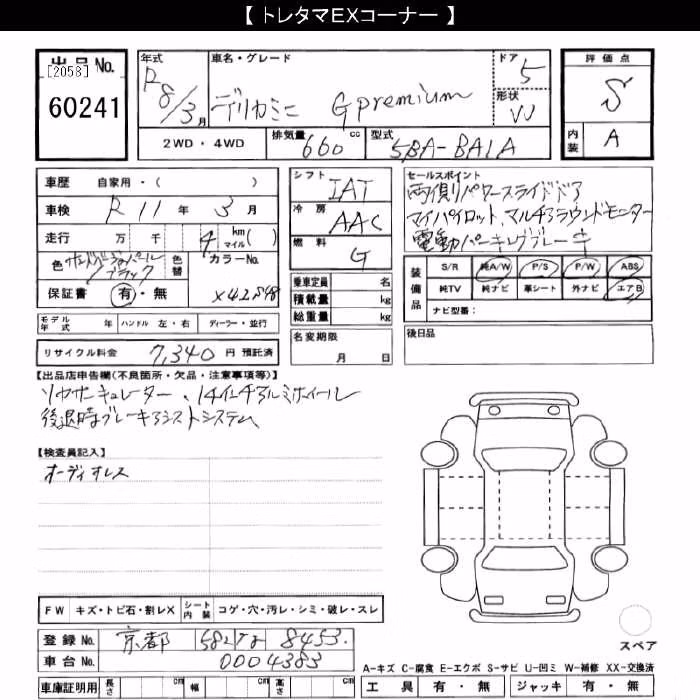 【 トレタマEXコーナー 】
出品No.
[2058]
60241
年式
R8/3月
車名・グレード
デリカミニ Gpremium
ドア
5
形状
W
評価点
S
内装
A
2WD・4WD
排気量
660 cc
型式
5BA-BA1A
車歴 自家用・( )
車検 R11年3月
走行 万 千 4 km マイル( )
色 ブラック
色替
カラーNo.
X42
保証書 有・無
シフト
IAT
冷房
AAC
燃料
G
乗車定員 名
積載量 kg
総重量 kg
名変期限
月 日
セールスポイント
両側パワースライドドア
マイパイロット、マルチアラウンドモニター
電動パーキングブレーキ
装備品
S/R 純A/W P/S P/W ABS
純TV 純ナビ 革シート 外ナビ エアB
ナビ型番:
後日品
モデル年式 年 ハンドル 左・右 ディーラー・並行
リサイクル料金 7,340 円 預託済
【出品店申告欄(不良箇所・欠品・注意事項等)】
リヤサーキュレーター、14インチアルミホイール
後退時ブレーキアシストシステム
【検査員記入】
オーディオレス
FW キズ・トビ石・割レX シート内装 コゲ・穴・汚レ・シミ・破レ・スレ
登録No. 京都 582 な 8453
車台No. 0004383
スペア
A-キズ C-腐食 E-エクボ S-サビ U-凹ミ W-補修 XX-交換済
車庫証明用 長さ cm 幅 cm 高さ cm
工具 有・無 ジャッキ 有・無